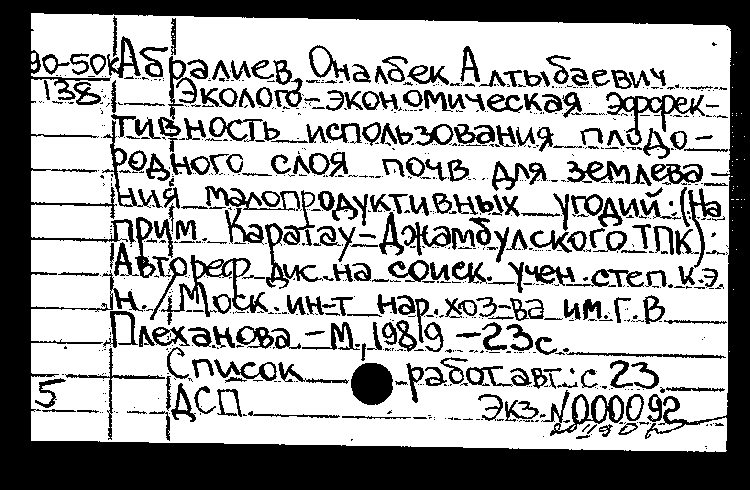 90-50к Абралиев, Оналбек Алтыбаевич
138 Эколого-экономическая эффек-
тивность использования плодо-
родного слоя почв для землева-
ния малопродуктивных угодий: (На
прим. Каратау-Джамбулского ТПК):
Автореф. дис. на соиск. учен. степ. к.э.
н. / Моск. ин-т нар. хоз-ва им. Г.В.
Плеханова. - М., 1989 - 23 с.
Список работ авт.: с. 23.
5 ДСП. Экз. N000092